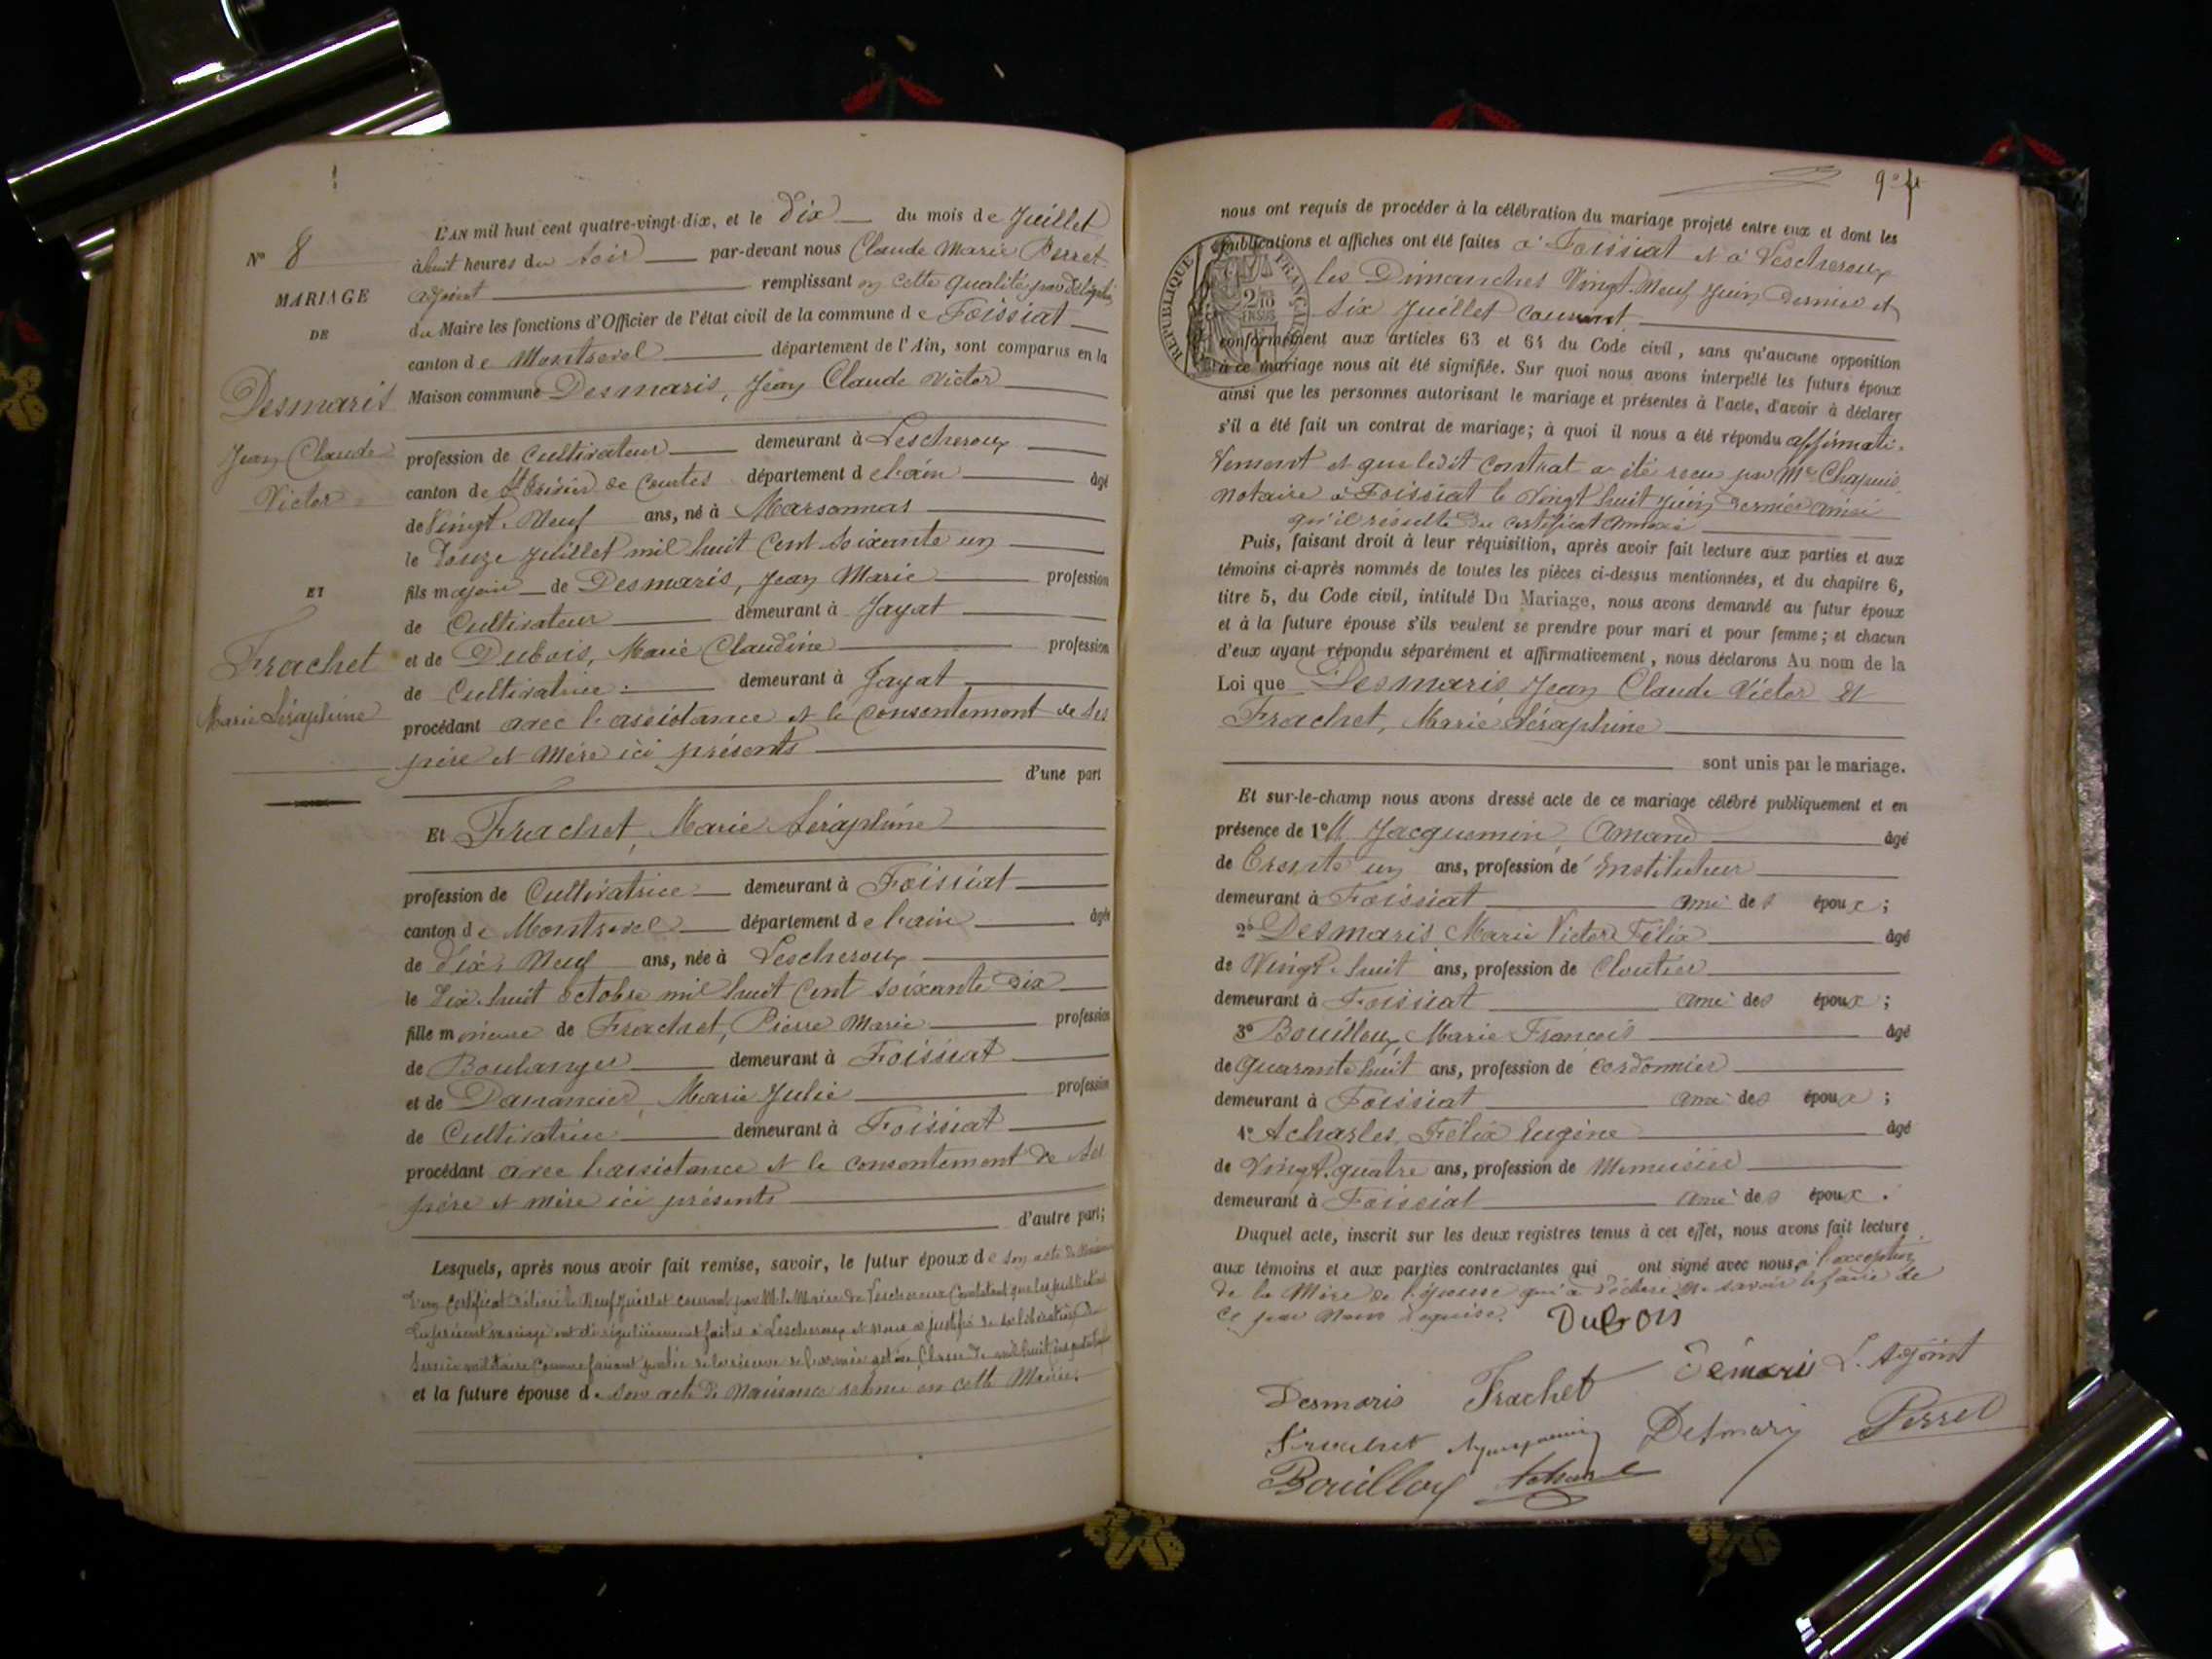 L'AN mil huit cent quatre-vingt-dix, et le Dix du mois de Juillet
à huit heures du soir par-devant nous Claude Marie Perret
adjoint remplissant en cette qualité par délégation
du Maire les fonctions d'Officier de l'état civil de la commune de Foissiat
canton de Montrevel département de l'Ain, sont comparus en la
Maison commune Desmaris, Jean Claude Victor
profession de Cultivateur demeurant à Lescheroux
canton de St Trivier de Courtes département de l'ain âgé
de Vingt-Neuf ans, né à Marsonnas
le Douze Juillet mil huit cent soixante un
fils majeur de Desmaris, Jean Marie profession
de Cultivateur demeurant à Jayat
et de Dubois, Marie Claudine profession
de Cultivatrice demeurant à Jayat
procédant avec l'assistance et le consentement de ses
père et mère ici présents
d'une part
Et Frachet, Marie Séraphine
profession de Cultivatrice demeurant à Foissiat
canton de Montrevel département de l'ain âgée
de Dix-Neuf ans, née à Lescheroux
le Dix-huit octobre mil huit cent soixante dix
fille mineure de Frachet, Pierre Marie profession
de Boulanger demeurant à Foissiat
et de Danancier, Marie Julie profession
de Cultivatrice demeurant à Foissiat
procédant avec l'assistance et le consentement de ses
père et mère ici présents
d'autre part;
Lesquels, après nous avoir fait remise, savoir, le futur époux de son acte de Naissance
D'un certificat délivré le Neuf Juillet courant par M. le Maire de Lescheroux Constatant que les publications
du présent mariage ont été régulièrement faites à Lescheroux et nous a justifié de sa libération du
service militaire comme faisant partie de la réserve de l'armée active Classe de mil huit cent
et la future épouse de son acte de Naissance retenu en cette Mairie.
N° 8
MARIAGE
DE
Desmaris
Jean Claude
Victor
ET
Frachet
Marie Séraphine
nous ont requis de procéder à la célébration du mariage projeté entre eux et dont les
publications et affiches ont été faites à Foissiat et à Lescheroux
les Dimanches Vingt-Neuf Juin dernier et
six Juillet courant
conformément aux articles 63 et 64 du Code civil, sans qu'aucune opposition
à ce mariage nous ait été signifiée. Sur quoi nous avons interpellé les futurs époux
ainsi que les personnes autorisant le mariage et présentes à l'acte, d'avoir à déclarer
s'il a été fait un contrat de mariage; à quoi il nous a été répondu affirmati-
vement et que ledit contrat a été reçu par Me Chapuis
notaire à Foissiat le Vingt huit Juin dernier ainsi
qu'il résulte du certificat annexé
Puis, faisant droit à leur réquisition, après avoir fait lecture aux parties et aux
témoins ci-après nommés de toutes les pièces ci-dessus mentionnées, et du chapitre 6,
titre 5, du Code civil, intitulé Du Mariage, nous avons demandé au futur époux
et à la future épouse s'ils veulent se prendre pour mari et pour femme; et chacun
d'eux ayant répondu séparément et affirmativement, nous déclarons Au nom de la
Loi que Desmaris Jean Claude Victor et
Frachet, Marie Séraphine
sont unis par le mariage.
Et sur-le-champ nous avons dressé acte de ce mariage célébré publiquement et en
présence de 1° M. Jacquemin Amand âgé
de Trente un ans, profession de Instituteur
demeurant à Foissiat ami des époux;
2° Desmaris Marie Victor Félix âgé
de Vingt-huit ans, profession de Cloutier
demeurant à Foissiat ami des époux;
3° Bouilloux Marie François âgé
de quarante huit ans, profession de cordonnier
demeurant à Foissiat ami des époux;
4° Acharles, Félix Eugène âgé
de Vingt-quatre ans, profession de Menuisier
demeurant à Foissiat ami des époux.
Duquel acte, inscrit sur les deux registres tenus à cet effet, nous avons fait lecture
aux témoins et aux parties contractantes qui ont signé avec nous, à l'exception
de la Mère de l'épouse qui a déclaré ne savoir le faire de
ce par nous requise. DuBOis
Desmaris Frachet Démaris L'Adjoint
Frachet Jacquemin Desmaris Perret
Bouilloux Acharle
RÉPUBLIQUE FRANÇAISE